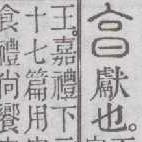 亯獻也。
王。嘉禮下
十七篇用
食禮尚饗